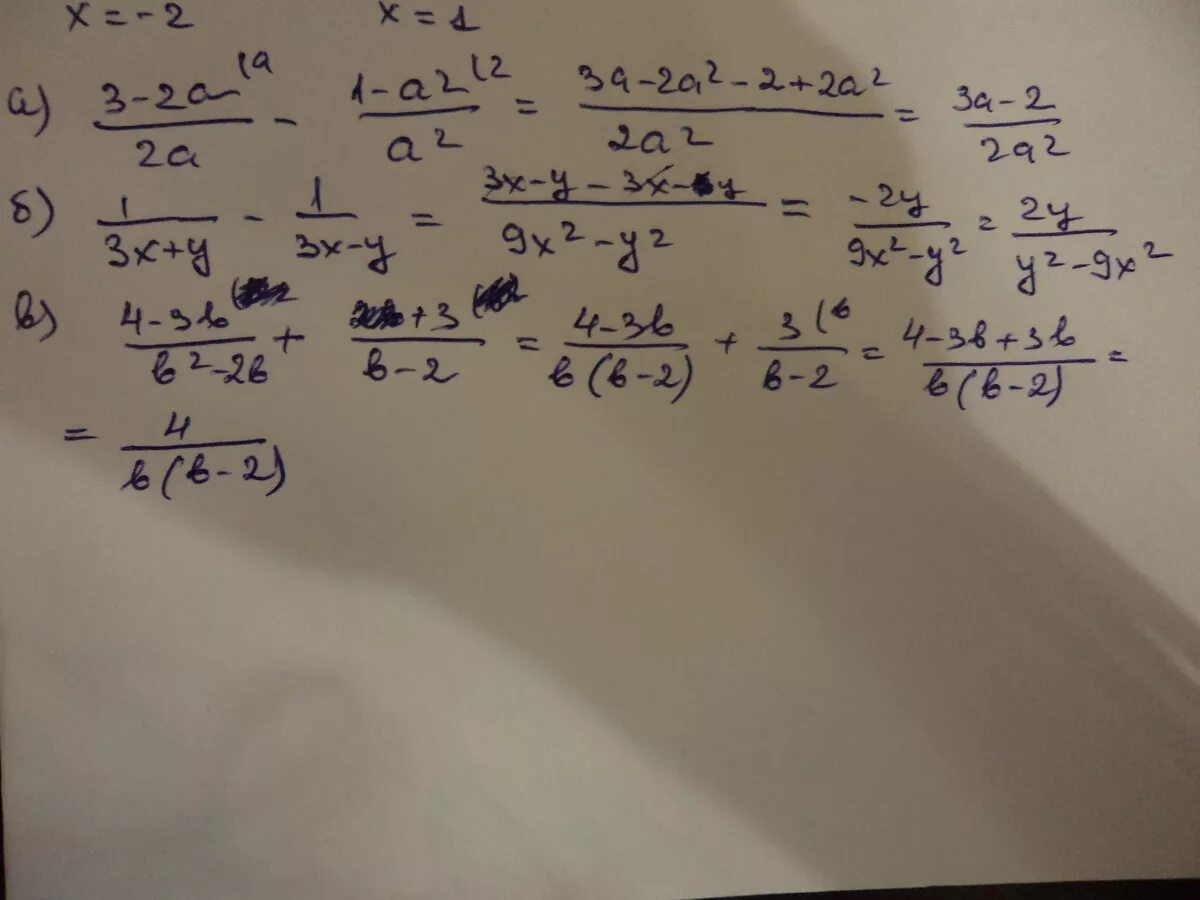 x = -2 x = 1
а) (3-2a)/(2a) (a - (1-a²)/(a²) (2 = (3a-2a²-2+2a²)/(2a²) = (3a-2)/(2a²)
б) 1/(3x+y) - 1/(3x-y) = (3x-y-3x-y)/(9x²-y²) = (-2y)/(9x²-y²) = (2y)/(y²-9x²)
в) (4-3в)/(в²-2в) + (+3)/(в-2) = (4-3в)/(в(в-2)) + 3/(в-2) (в = (4-3в+3в)/(в(в-2)) =
= 4/(в(в-2))